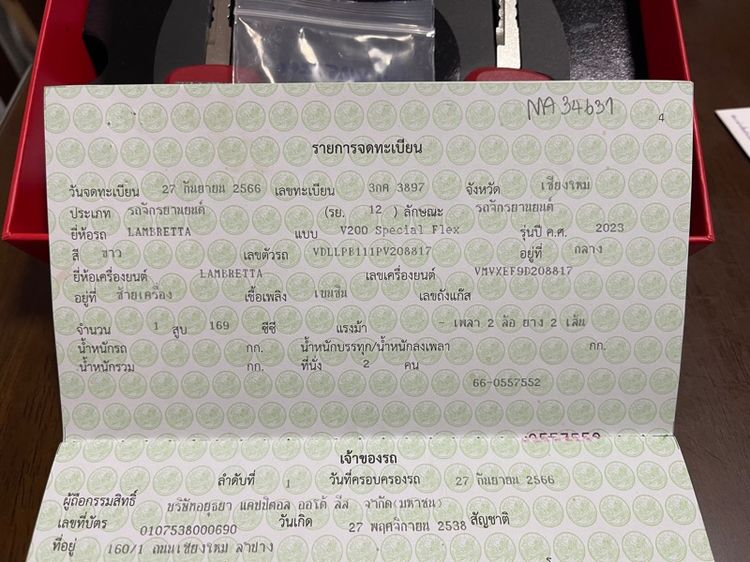 MA 34631
4
รายการจดทะเบียน
วันจดทะเบียน 27 กันยายน 2566 เลขทะเบียน 3กค 3897 จังหวัด เชียงใหม่
ประเภท รถจักรยานยนต์ (รย. 12 ) ลักษณะ รถจักรยานยนต์
ยี่ห้อรถ LAMBRETTA แบบ V200 Special Flex รุ่นปี ค.ศ. 2023
สี ขาว เลขตัวรถ VDLLPB111PV208817 อยู่ที่ กลาง
ยี่ห้อเครื่องยนต์ LAMBRETTA เลขเครื่องยนต์ VMVXEF9D208817
อยู่ที่ ซ้ายเครื่อง เชื้อเพลิง เบนซิน เลขถังแก๊ส
จำนวน 1 สูบ 169 ซีซี แรงม้า - เพลา 2 ล้อ ยาง 2 เส้น
น้ำหนักรถ กก. น้ำหนักบรรทุก/น้ำหนักลงเพลา กก.
น้ำหนักรวม กก. ที่นั่ง 2 คน
66-0557552
0557552
เจ้าของรถ
ลำดับที่ 1 วันที่ครอบครองรถ 27 กันยายน 2566
ผู้ถือกรรมสิทธิ์ บริษัทอยุธยา แคปปิตอล ออโต้ ลีส จำกัด(มหาชน)
เลขที่บัตร 0107538000690 วันเกิด 27 พฤศจิกายน 2538 สัญชาติ
ที่อยู่ 160/1 ถนนเชียงใหม่ ลำปาง